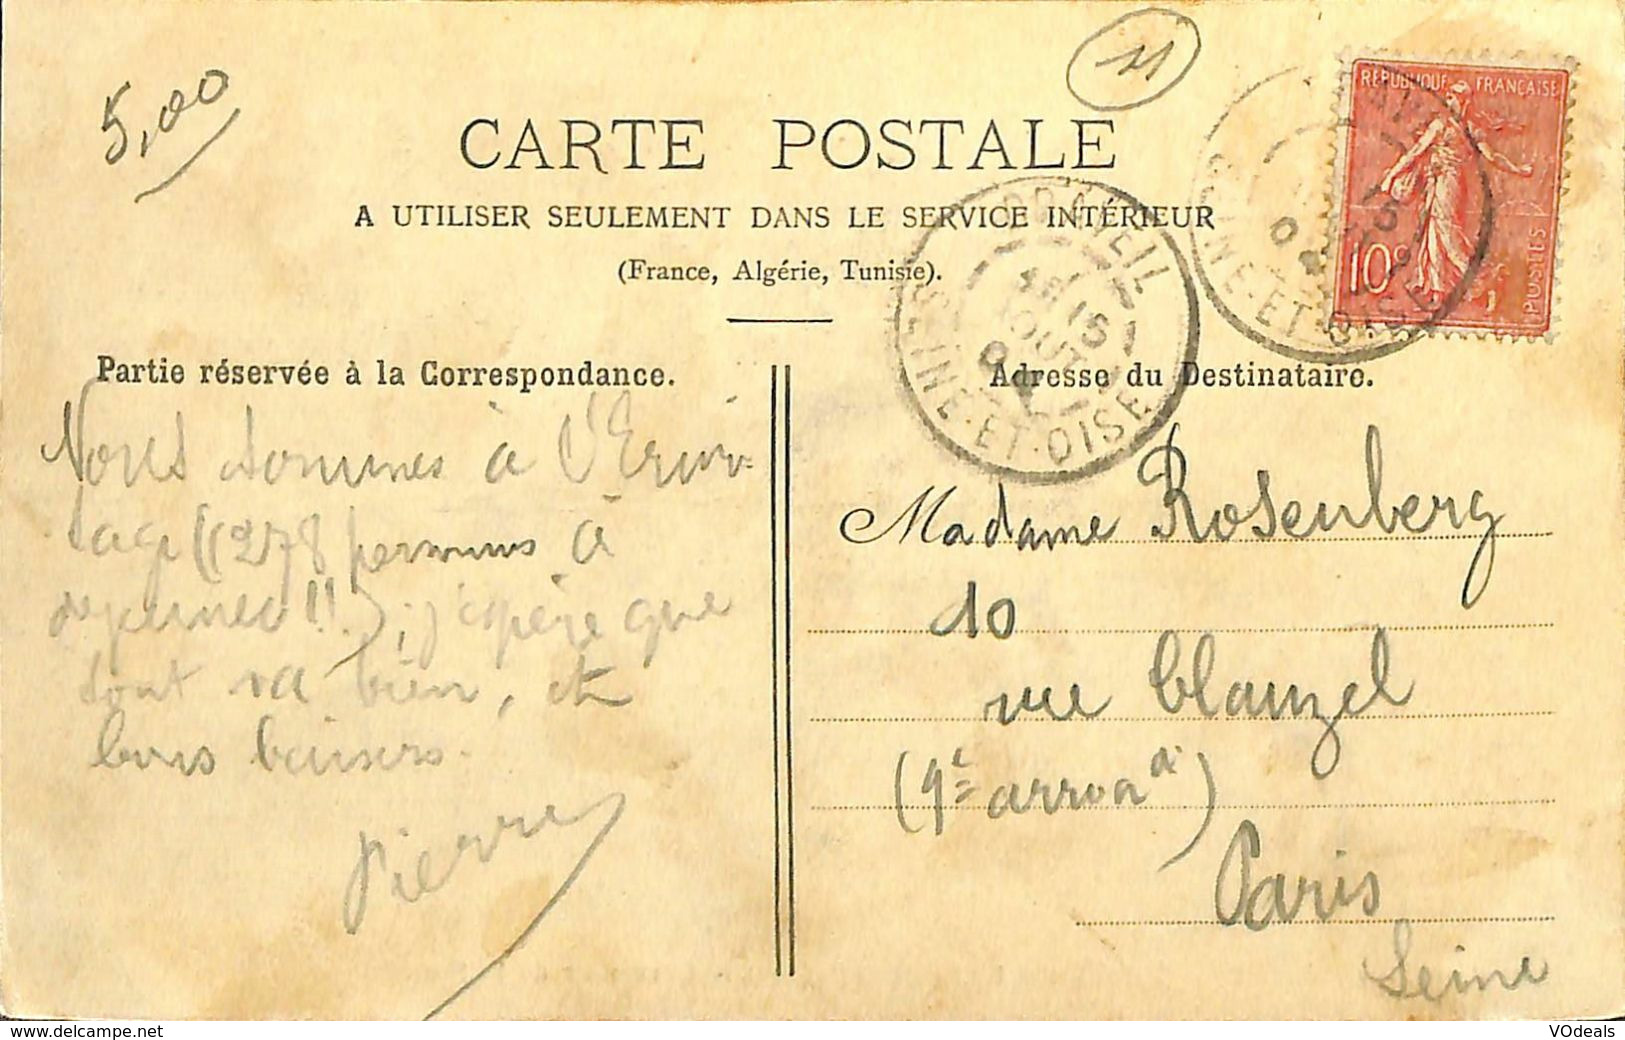 5,00
11
RÉPUBLIQUE FRANÇAISE
10c
POSTES
CARTE POSTALE
A UTILISER SEULEMENT DANS LE SERVICE INTÉRIEUR
(France, Algérie, Tunisie).
DRAVEIL
15
AOUT
SEINE-ET-OISE
SEINE-ET-OISE
Partie réservée à la Correspondance.
Nous sommes à l'Ermi-
tage ((278 personnes à
dejeuner!!), j'espère que
tout va bien, et
bons baisers.
Pierre
Adresse du Destinataire.
Madame Rosenberg
10
rue Clauzel
(9e arron dt)
Paris
Seine
VOdeals
www.delcampe.net